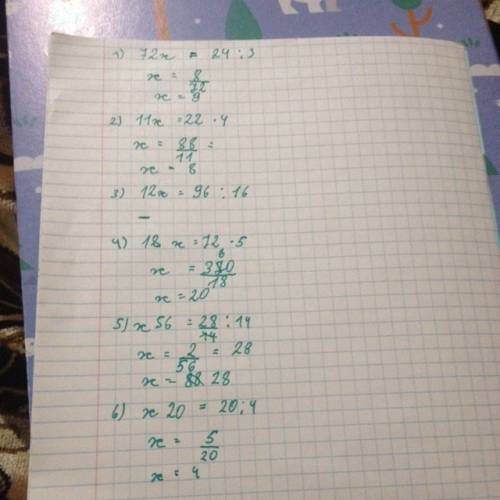 1) 72x = 24 : 3
x = 8/72
x = 9
2) 11x = 22 · 4
x = 88/11 =
x = 8
3) 12x = 96 : 16
—
4) 18 x = 72 · 5
x = 360/18
x = 20
5) x 56 = 28/14 : 14
x = 2/56 = 28
x = 28
6) x 20 = 20 : 4
x = 5/20
x = 4